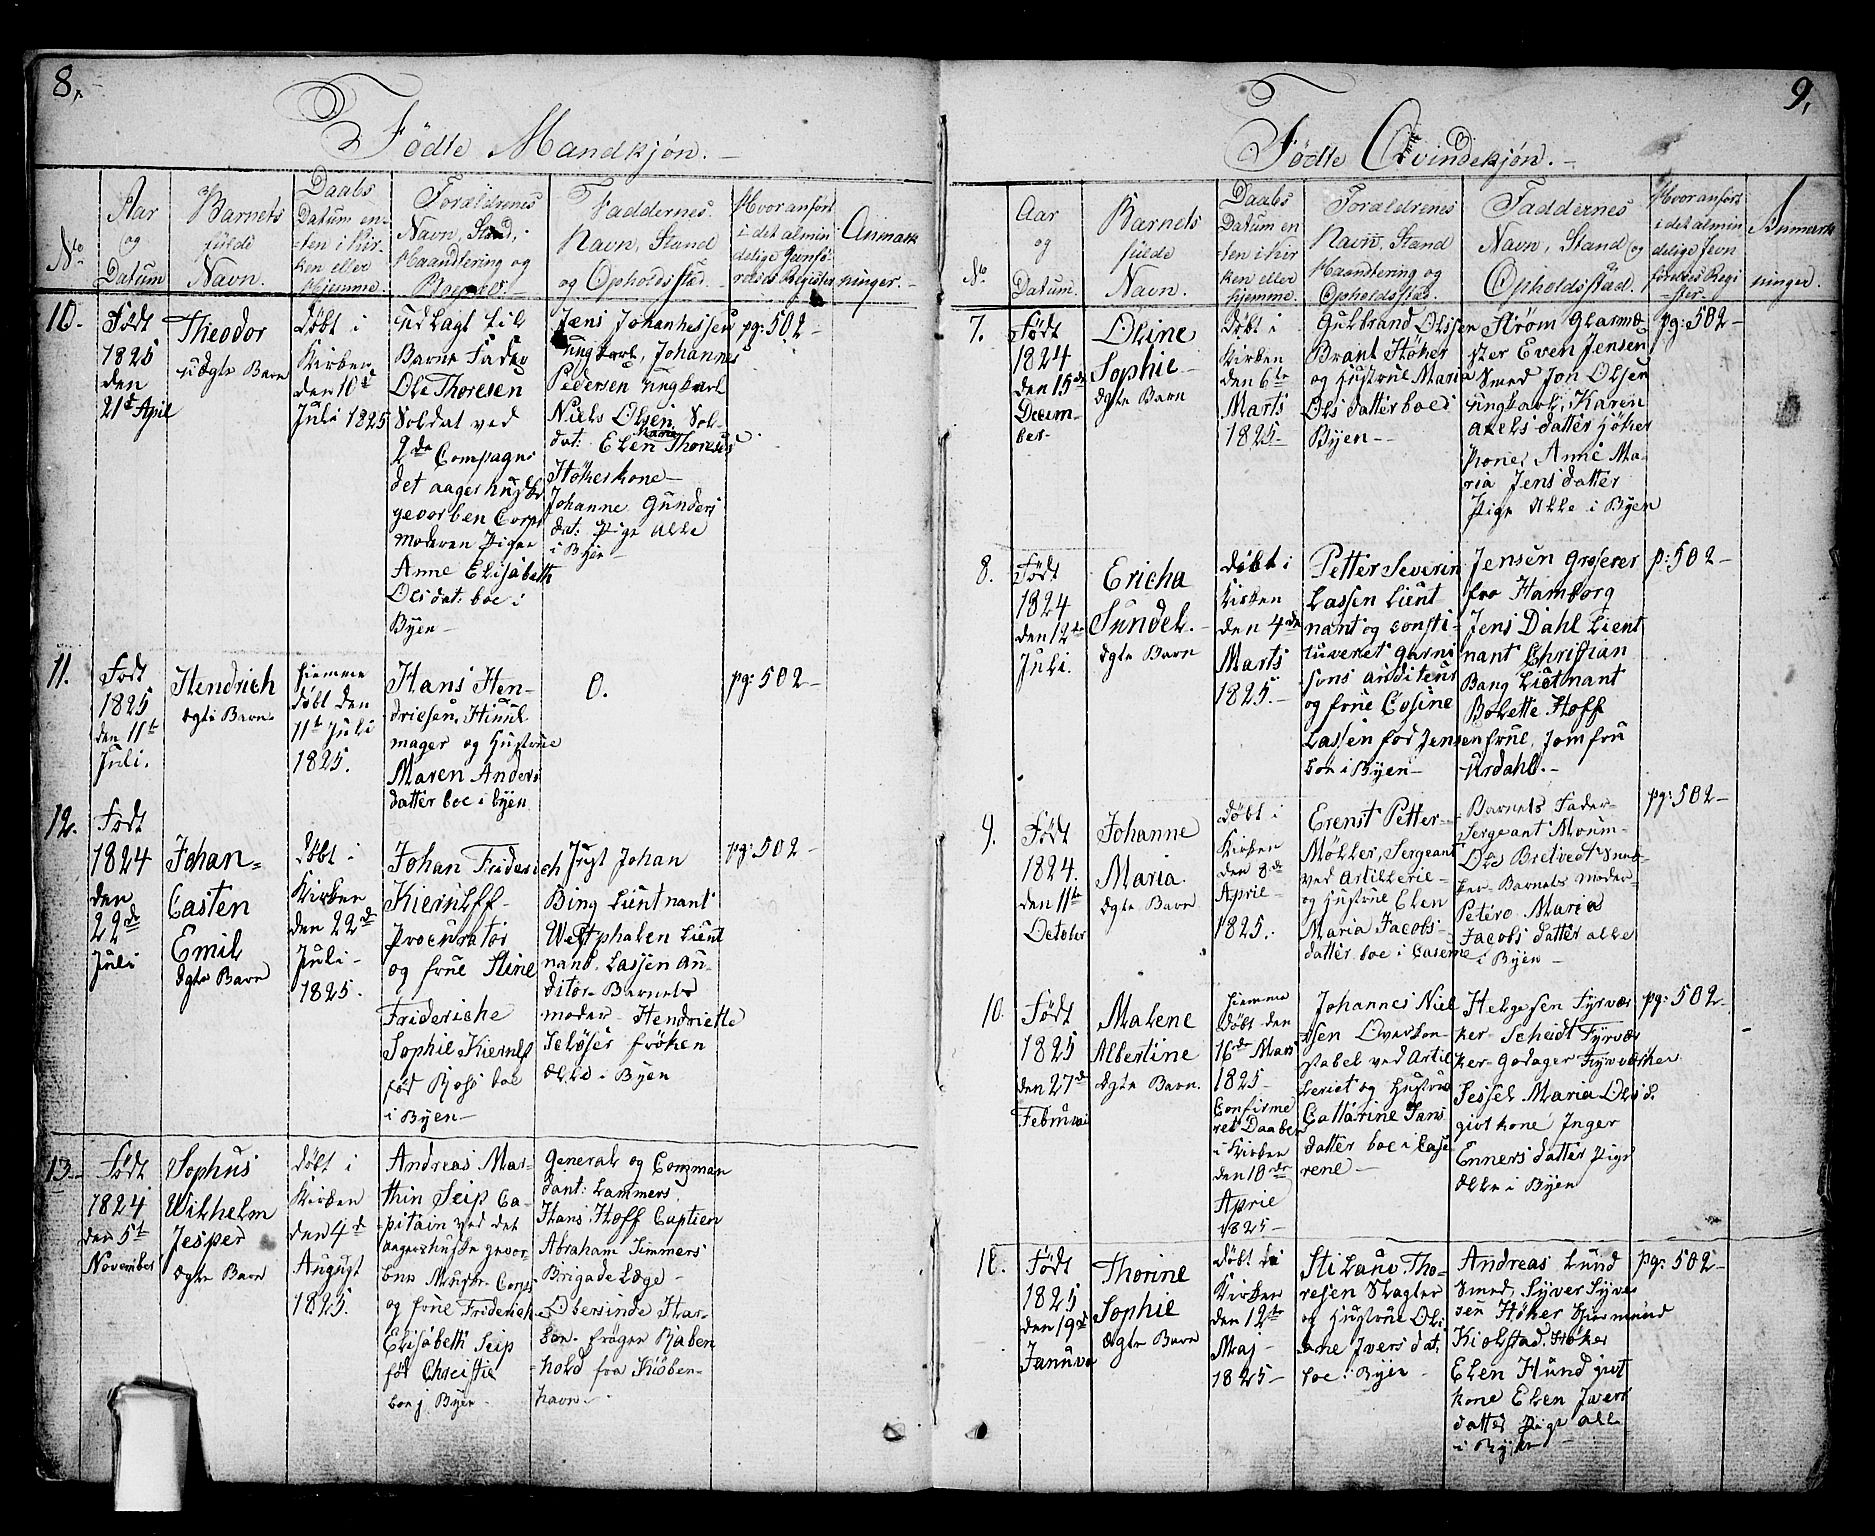 8.
Födte Mandkjøn.
No
Aar
og
Datum
Barnets
fulde
Navn.
Daabs
Datum en-
ten i Kir-
ken eller
Hjemme.
Forældrenes
Navn, Stand,
Haandtering og
Faddernes
Navn, Stand
og Opholdsstæd.
Hvor anført
i det almin
delige Jevnfø-
relses Register
Anmærk
ninger.
10.
Født
1825
den
21de April
Theodor
uægte Barn
Døbt i
Kirken
den 10de
Juli 1825
Udlagt til
Barne Fader
Ole Thoresen
Soldat ved
2de Compagni
det aagershuske
gevorben Corps
Moderen Pigen
Anne Elisabeth
Olsdat: boe i
Byen
Jens Johannessen
ungkarl, Johannes
Pedersen ungkarl
Niels Olsen Sol-
dat: Elen Maria Thoreses
Høkerkone
Johanne Gunders
dat: Pige alle
i Byen
pg: 502
11.
Født
1825
den 11te
Juli.
Hendrich
ægte Barn
hiemme
døbt den
11te Juli
1825.
Hans Hen-
driesen, Hiuul
mager og Hustrue
Maren Anders
datter boe i byen
0.
pg: 502
12.
Født
1824
den
22de
Juli
Johan
Casten
Emil
ægte Barn
Døbt i
Kirken
den 22de
Juli
1825.
Johan Friderich
Kierulff
Procurator
og frue Stine
Frideriche
Sophie Kierulf
fød Ross boe
i Byen
Just Johan
Bing Lieutnant
Westphalen Lieut
nand. Lassen Au-
ditør Barnets
moder Hendriette
frøken
alle i Byen
pg: 502
13.
Født
1824
den 5te
November
Sophus
Wilhelm
Jesper
ægte Barn
Døbt i
Kirken
den 4de
August
1825.
Andreas Mar-
thin Seip Ca-
pitain ved det
aagershuske gevor-
bne Musk. Corps
og frue Friderich
Elisabeth Seip
fød Christie
boe i Byen
General og Comman
dant: Lammers
Hans Hoff Captien
Abraham Simmers
Brigade Læge
Obersinde Har-
bon. frøgen Raben
hold fra Kiøben-
havn.
9.
Födte Qvindekjøn.
No.
Aar
og
Datum.
Barnets
fulde
Navn.
Daabs
Datum en
ten i Kir
ken eller
hjemme.
Forældrenes
Navn, Stand
Haandtering og
Opholdsstæd.
Faddernes
Navn, Stand og
Opholdsstæd.
Hvor anført
i det almin
delige Jevn
førelses Regi
ster.
Anmærk
ninger.
7.
Født
1824
den 15de
Decem-
ber
Oline
Sophie
ægte Barn
Døbt i
Kirken
den 6te
Marts
1825
Gulbrand Olssen
Brant Høker
og Hustrue Maria
Ols datter boe i
Byen
Strøm Glarme-
ster Even Jensen
Smed Jon Olsen
ungkarl, Karen
Axels datter Høker
kone, Anne Ma-
ria Jens datter
Pige Alle i Byen
pg: 502
8.
Født
1824
den 12te
Juli.
Ericha
Sundel.
ægte Barn
Døbt i
Kirken
den 4de
Marts
1825.
Petter Severin
Lassen Lieut-
nant og consti-
tuveret garni
sons auditeur
og frue Cosine
Lassen fød Jensen
boe i Byen
Jensen groserer
fra Hamborg
Jens Dahl Lieut
nant Christian
Bang Lieutnant
Bolette Hoff
frue, Jomfru
Urdahl.
p: 502
9.
Født
1824.
den 11te
October
Johanne
Maria.
ægte Barn
Døbt i
Kirken
den 8de
Aprie
1825.
Erenst Petter
Møller, Sergeant
ved Artillerie
og Hustrue Elen
Maria Jacobs
datter boe i Caserne
Barnets Fader
Sergeant Moum
Ole Bretvedt Sned
ker Barnets Moder
Petero Maria
Jacobs datter alle
i Byen
pg: 502
10.
Født
1825
den 27de
Februari
Malene
Albertine
ægte Barn.
hiemme
døbt den
16de Mars
1825
Confirme
ret Daaben
i Kirken
den 10de
Aprie
1825
Johannes Niel
sen Overkon-
stabel ved Artil
leriet og Hustrue
Cattarine Jans
datter boe i Case
rene
Helgesen Fyrvær
ker Scheidt Fyrvær
ker Godager Fyrværker
Sessel Maria Ols d.
givt kone Inger
Enners datter Pige
Alle i Byen
pg: 502
11.
Født
1825
den 19de
Januva
Thorine
Sophie
ægte Barn
Døbt i
Kirken
den 12te
Maj
1825
Stilauv Tho-
resen Slagter
og Hustrue Oli
ane Ivers dat.
boe i Byen
Andreas Lund
Smed, Syver Syver
sen Høker
Kiolstad, Høker
Elen Hund givt
kone Elen Ivers
datter Pige alle
i Byen
pg: 502